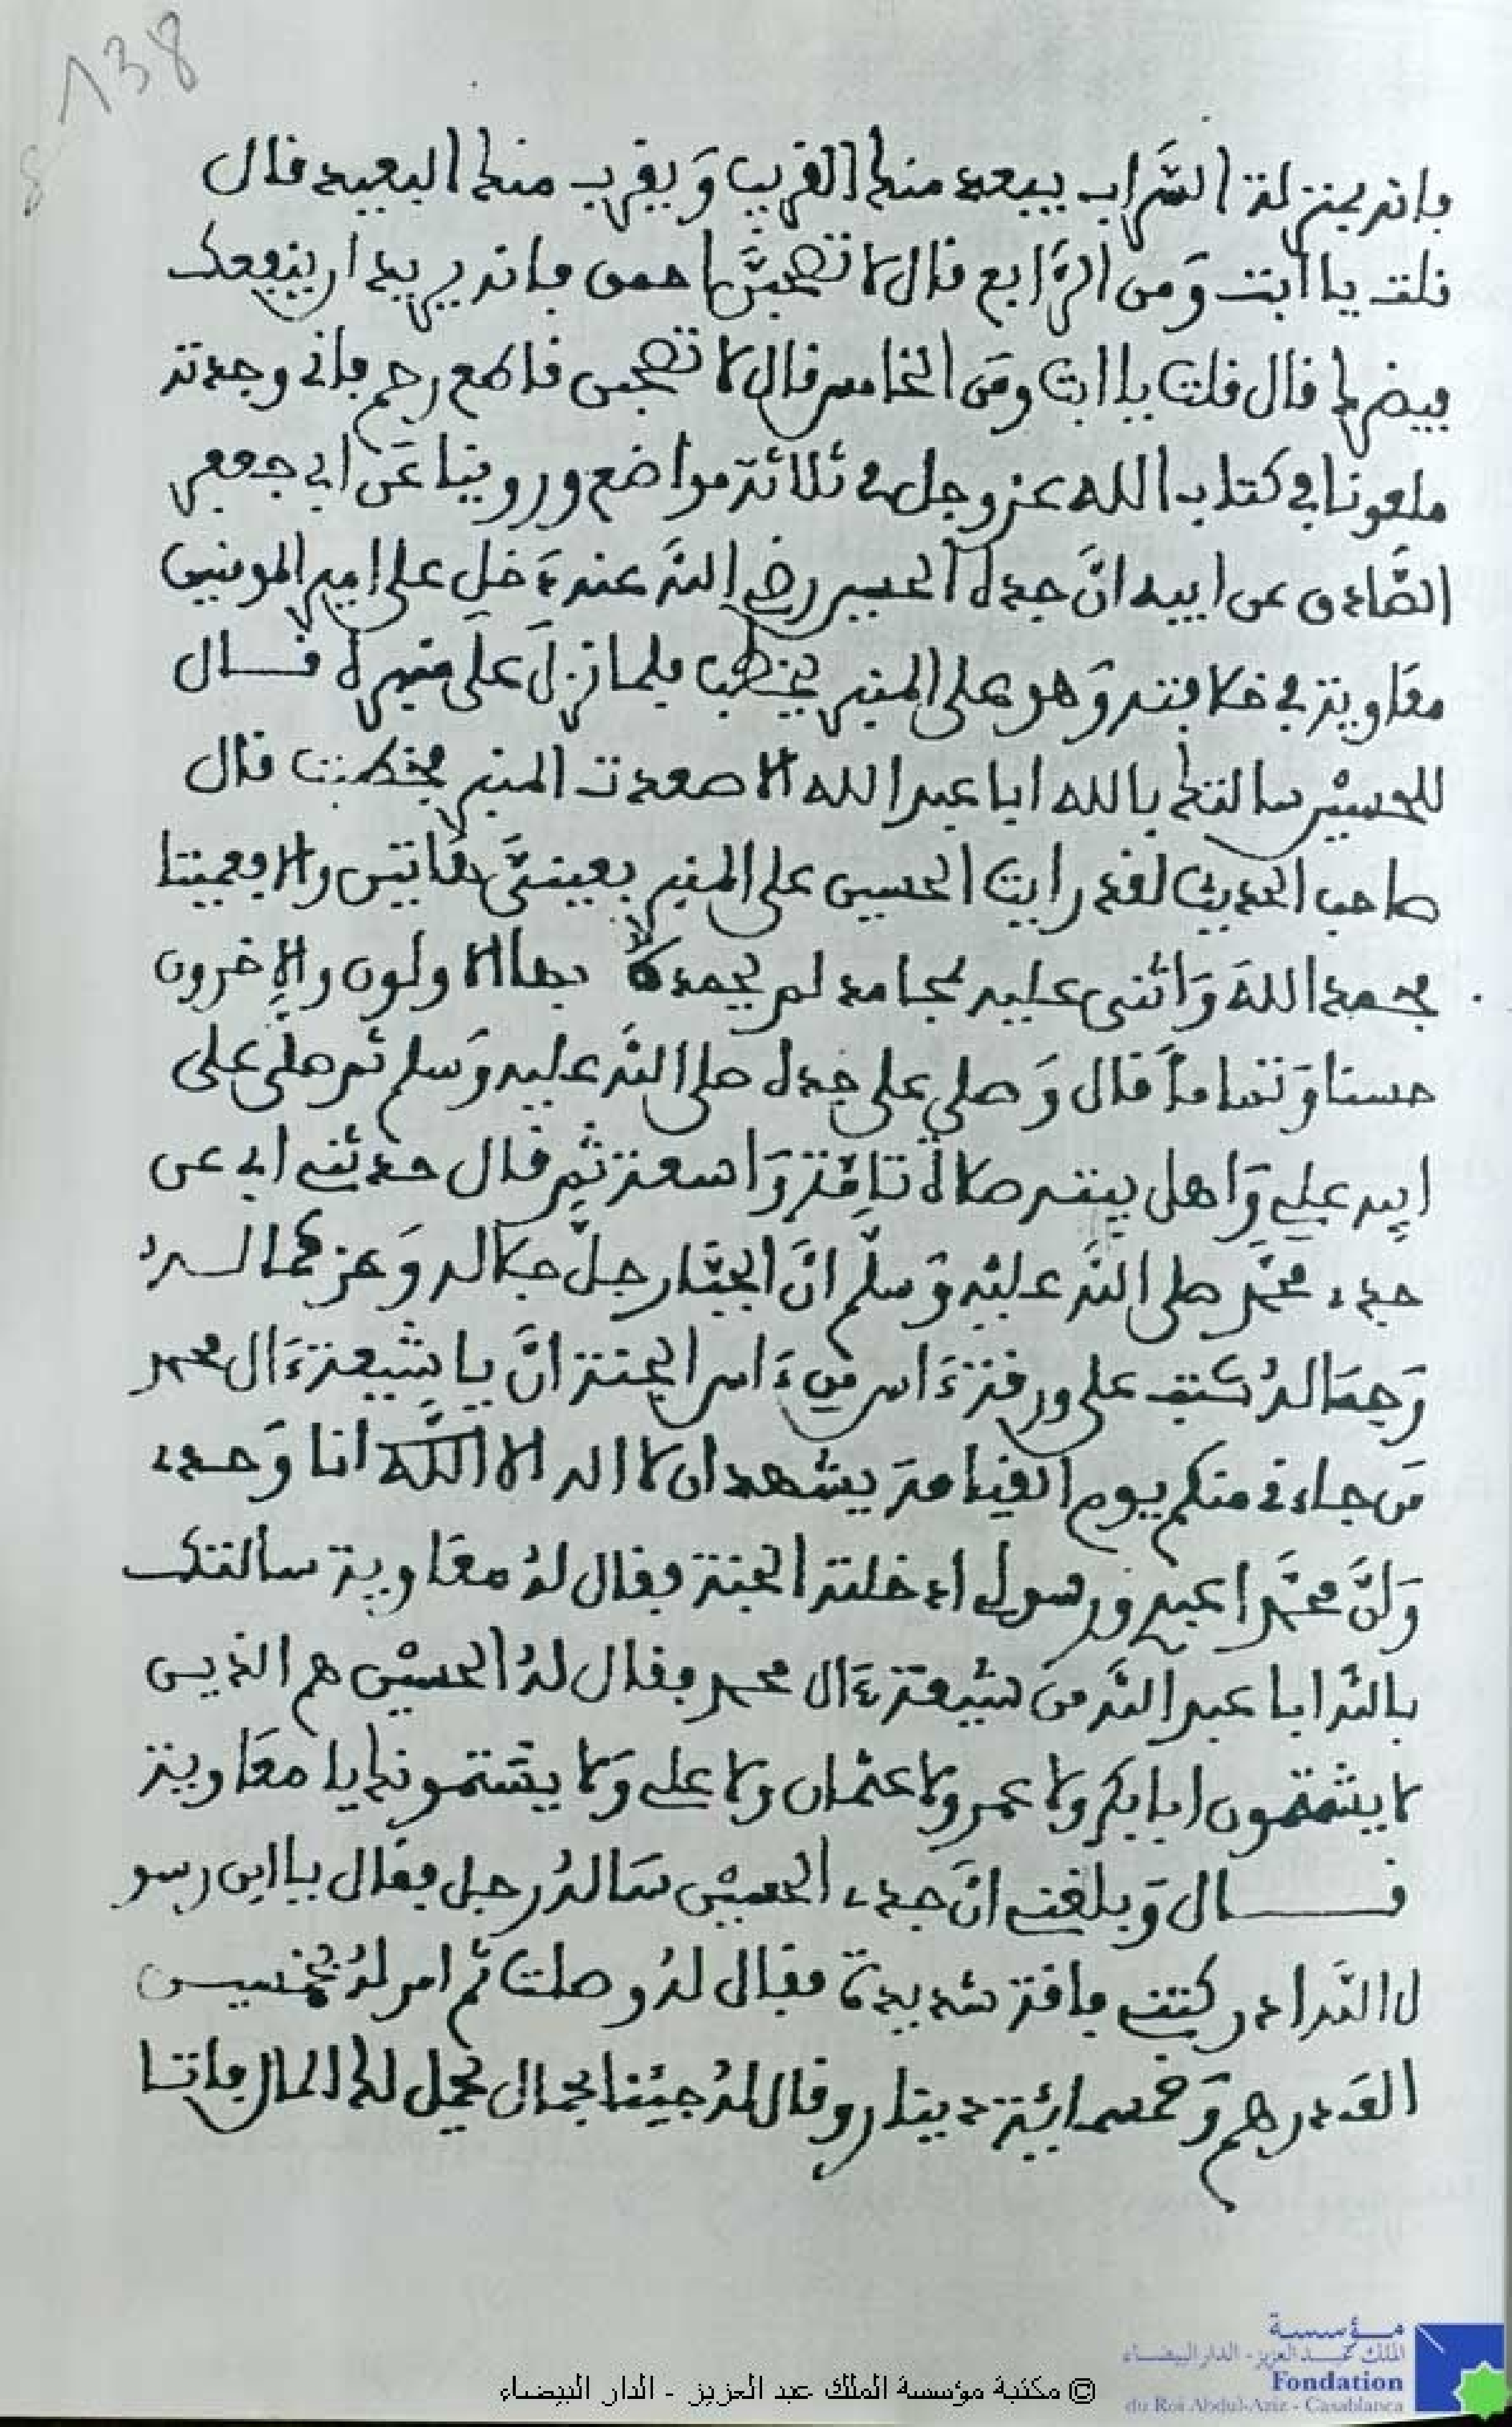 138
فإنه بمنزلة السّراب يبعد منك القريب وَيقرب منك البعيد قال
قلت يا ابت وَمن الرّابع قال لا تصحبنّ احمق فإنه يريد ان ينفعك
فيضرك قال قلت يا ابت ومَن الخامس قال لا تصحبن قاطع رحم فإني وجدته
ملعونا في كتاب الله عز وجل في ثلاثة مواضع وروينا عَن ابي جعفر
الصَّادق عن ابيه انَّ جده الحسين رضي اللهَ عنه دَخل على امير المومنين
معَاوية في خلافته وَهو على المنبر يخطب فلما نزل عَلى منبره قال
للحسيْن سالتك بالله ابا عبد الله الا صعدت المنبر فخطبت قال
صاحب الحديث لقد رايت الحسين على المنبر بعينيَّ هَاتين والا فعميتا
فحمد اللهَ وَاثنى عليه بمحامد لم يحمده بها الاولون والاخرون
حسنا وَتماماً قال وَصلى على جده صلى اللهَ عليه وَسلم ثم صلّى على
ابيه علي وَاهل بيته صلاة تامَّة وَاسعة ثم قال حدثني ابي عن
جده محمَّد صلى اللهَ عليْه وَسلّم انَّ الجبَّار جلّ جلاله وَعز كماله
وَجمَاله كتب على ورقة ءَاس من ءَاس الجنة انَّ يا شيعة ءَال محمد
مَن جاءني منكم يوم القيامة يشهد ان لا اله الا اللّه انا وَحدي
وَانَّ محمَّدا عبدي ورسولي ادخلته الجنة فقال لهُ معَاوية سالتك
بالله ابا عبد الله مَن شيْعَة ءَال محمد فقال لهُ الحسيْن هم الذين
لا يشتمون ابا بكر ولا عمر ولا عثمان ولا علي وَلا يشتمونك يا معَاوية
قال وَبلغني انَّ جدي الحسيْن سَالهُ رجل فقال يا ابن رسو
ل الله ادركتني فاقة شديدة فقال لهُ وصلت ثم امر لهُ بخمسين
الف درهم وَخمسمائة دينار وقال لهُ جيئنا بجمال يحمل لك المال فاتا
مؤسسة
الملك عبد العزيز - الدار البيضاء
Fondation
du Roi Abdul-Aziz - Casablanca
© مكتبة مؤسسة الملك عبد العزيز - الدار البيضاء